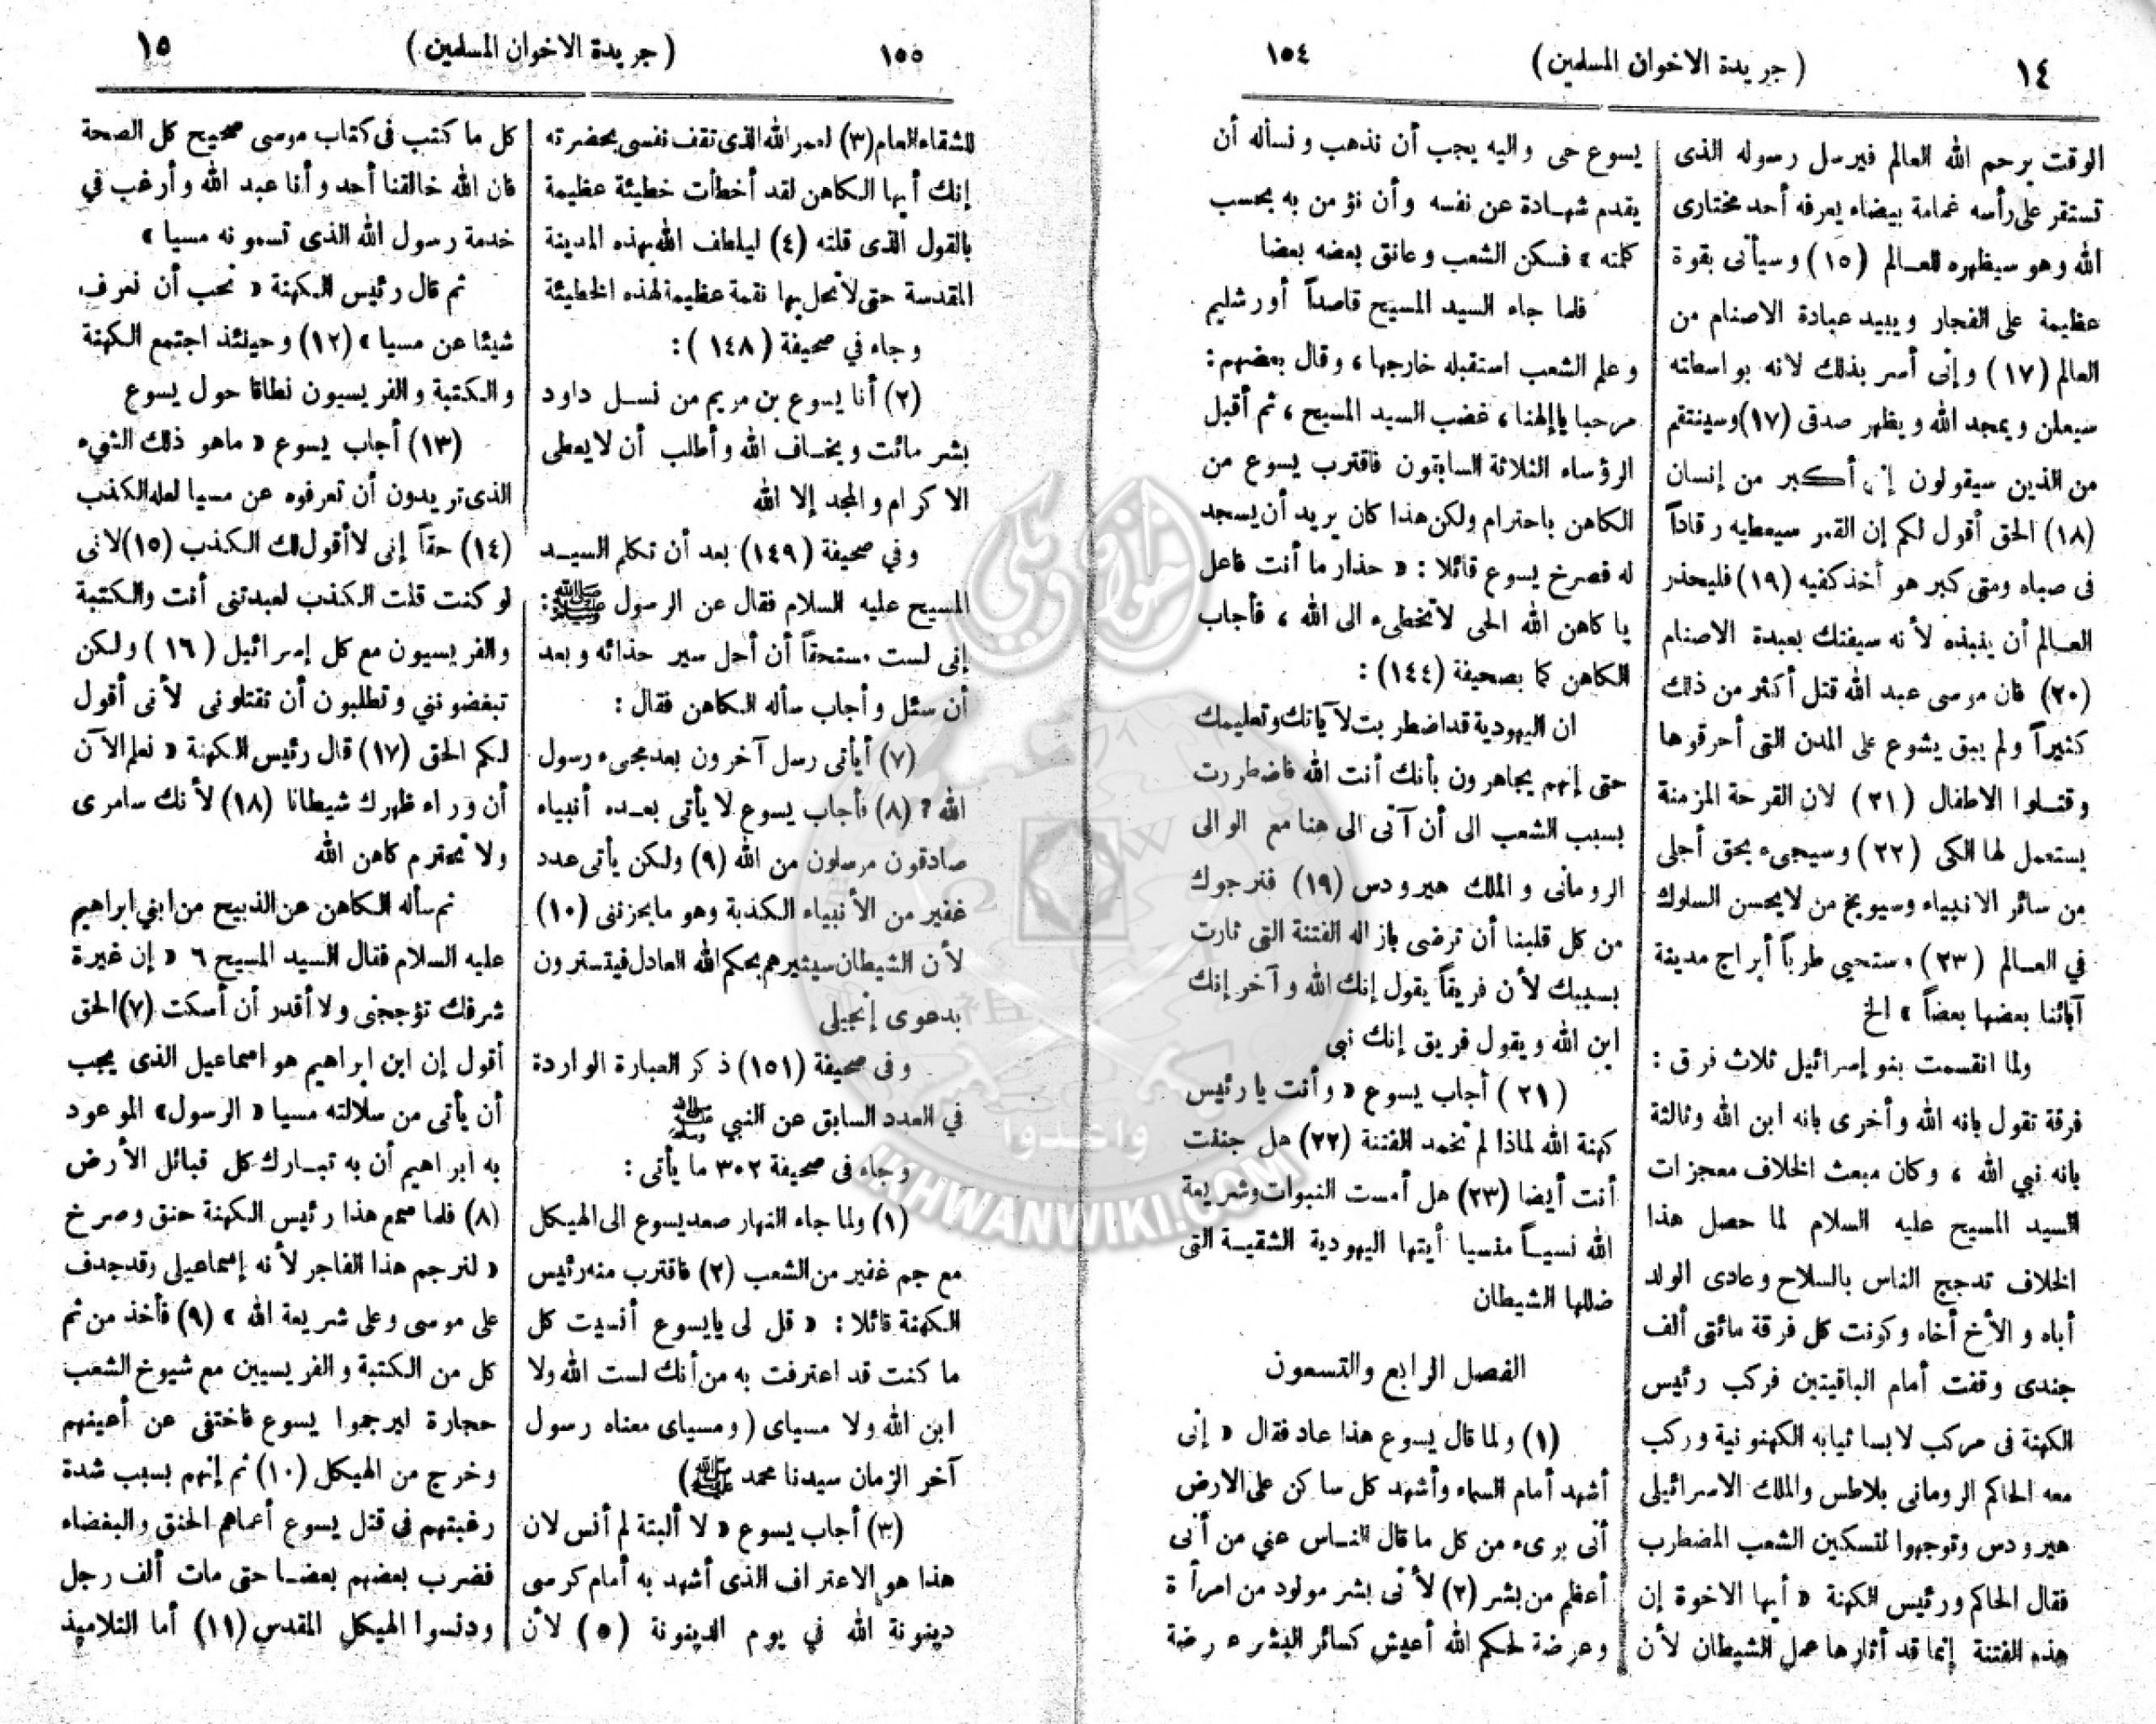 ١٤ (جريدة الاخوان المسلمين) ١٥٤
الوقت يرحم الله العالم فيرسل رسوله الذى
تستقر على رأسه غمامة بيضاء يعرفه أحد مختارى
الله وهو سيظهره للعالم (١٥) وسيأتى بقوة
عظيمة على الفجار ويبيد عبادة الاصنام من
العالم (١٧) وإنى أسر بذلك لانه بواسطته
سيعلن ويمجد الله ويظهر صدقى (١٧) وسينتقم
من الذين سيقولون إنى أكبر من إنسان
(١٨) الحق أقول لكم إن القمر سيعطيه رقاداً
فى صباه ومتى كبر هو أخذ كفيه (١٩) فليحذر
العالم أن ينبذه لأنه سيفتك بعبدة الاصنام
(٢٠) فان موسى عبد الله قتل أكثر من ذلك
كثيراً ولم يبق يشوع على المدن التى أحرقوها
وقتلوا الاطفال (٢١) لان القرحة المزمنة
يستعمل لها الكى (٢٢) وسيجىء بحق أجلى
من سائر الانبياء وسيوبخ من لا يحسن السلوك
في العالم (٢٣) وستحيي طرباً أبراج مدينة
آبائنا بعضها بعضاً » الخ
ولما انقسمت بنو إسرائيل ثلاث فرق :
فرقة تقول بانه الله وأخرى بانه ابن الله وثالثة
بانه نبي الله ، وكان مبعث الخلاف معجزات
السيد المسيح عليه السلام لما حصل هذا
الخلاف تدجج الناس بالسلاح وعادى الولد
أباه والأخ أخاه وكونت كل فرقة مائتى ألف
جندى وقفت أمام الباقيتين فركب رئيس
الكهنة فى مركب لابسا ثيابه الكهنونية وركب
معه الحاكم الرومانى بلاطس والملك الاسرائيلى
هيرودس وتوجهوا لتسكين الشعب المضطرب
فقال الحاكم ورئيس الكهنة « أيها الاخوة إن
هذه الفتنة إنما قد أثارها عمل الشيطان لأن
يسوع حى واليه يجب أن نذهب ونسأله أن
يقدم شهادة عن نفسه وأن نؤمن به بحسب
كلمته » فسكن الشعب وعانق بعضه بعضا
فلما جاء السيد المسيح قاصداً أورشليم
وعلم الشعب استقبله خارجها ، وقال بعضهم :
مرحبا ياإلهنا ، غضب السيد المسيح ، ثم أقبل
الرؤساء الثلاثة السابقون فاقترب يسوع من
الكاهن باحترام ولكن هذا كان يريد أن يسجد
له فصرخ يسوع قائلا : « حذار ما أنت فاعل
يا كاهن الله الحى لا تخطىء الى الله ، فأجاب
الكاهن كما بصحيفة (١٤٤) :
ان اليهودية قد اضطربت لآياتك وتعليمك
حتى إنهم يجاهرون بأنك أنت الله فاضطررت
بسبب الشعب الى أن آتى الى هنا مع الوالى
الرومانى والملك هيرودس (١٩) فنرجوك
من كل قلبنا أن ترضى بازاله الفتنة التى ثارت
بسببك لأن فريقاً يقول إنك الله وآخر إنك
ابن الله ويقول فريق إنك نبى
(٢١) أجاب يسوع « وأنت يا رئيس
كهنة الله لماذا لم تخمد الفتنة (٢٢) هل جننت
أنت أيضا (٢٣) هل أمست النبوات وشريعة
الله نسياً منسيا أيتها اليهودية الشقية التى
ضللها الشيطان
الفصل الرابع والتسعون
(١) ولما قال يسوع هذا عاد فقال « إنى
أشهد أمام السماء وأشهد كل ساكن على الارض
أنى برىء من كل ما قال الناس عني من أنى
أعظم من بشر (٢) لأنى بشر مولود من امرأة
وعرضة لحكم الله أعيش كسائر البشر عرضة
١٥٥ (جريدة الاخوان المسلمين) ١٥
للشقاء العام (٣) لعمر الله الذى تقف نفسى بحضرته
إنك أيها الكاهن لقد أخطأت خطيئة عظيمة
بالقول الذى قلته (٤) ليلطف الله بهذه المدينة
المقدسة حتى لا تحل بها نقمة عظيمة لهذه الخطيئة
وجاء في صحيفة (١٤٨) :
(٢) أنا يسوع بن مريم من نسل داود
بشر مائت ويخاف الله وأطلب أن لا يعطى
الاكرام والمجد إلا الله
وفي صحيفة (١٤٩) بعد أن تكلم السيد
المسيح عليه السلام فقال عن الرسول ﷺ :
إنى لست مستحقاً أن أحل سير حذائه وبعد
أن سئل وأجاب سأله الكاهن فقال :
(٧) أيأتى رسل آخرون بعد مجىء رسول
الله ؟ (٨) فأجاب يسوع لا يأتى بعده أنبياء
صادقون مرسلون من الله (٩) ولكن يأتى عدد
غفير من الأنبياء الكذبة وهو ما يحزننى (١٠)
لأن الشيطان سيثيرهم بحكم الله العادل فيتسترون
بدعوى إنجيلى
وفى صحيفة (١٥١) ذكر العبارة الواردة
في العدد السابق عن النبي ﷺ
وجاء فى صحيفة ٣٠٢ ما يأتى :
(١) ولما جاء النهار صعد يسوع الى الهيكل
مع جم غفير من الشعب (٢) فاقترب منه رئيس
الكهنة قائلا : « قل لى يايسوع أنسيت كل
ما كنت قد اعترفت به من أنك لست الله ولا
ابن الله ولا مسياى (ومسياى معناه رسول
آخر الزمان سيدنا محمد ﷺ)
(٣) أجاب يسوع « لا ألبتة لم أنس لان
هذا هو الاعتراف الذى أشهد به أمام كرسى
دينونة الله في يوم الدينونة (٥) لأن
كل ما كتب فى كتاب موسى صحيح كل الصحة
فان الله خالقنا أحد وأنا عبد الله وأرغب في
خدمة رسول الله الذى تسمونه مسيا »
ثم قال رئيس الكهنة « نحب أن نعرف
شيئا عن مسيا » (١٢) وحينئذ اجتمع الكهنة
والكتبة والفريسيون نطاقا حول يسوع
(١٣) أجاب يسوع « ماهو ذلك الشيء
الذى تريدون أن تعرفوه عن مسيا لعله الكذب
(١٤) حقاً إنى لا أقول لك الكذب (١٥) لانى
لو كنت قلت الكذب لعبدتنى أنت والكتبة
والفريسيون مع كل إسرائيل (١٦) ولكن
تبغضونني وتطلبون أن تقتلونى لأنى أقول
لكم الحق (١٧) قال رئيس الكهنة « نعلم الآن
أن وراء ظهرك شيطانا (١٨) لأنك سامرى
ولا تحترم كاهن الله
ثم سأله الكاهن عن الذبيح من ابني ابراهيم
عليه السلام فقال السيد المسيح ٦ « إن غيرة
شرفك تؤججنى ولا أقدر أن أسكت (٧) الحق
أقول إن ابن ابراهيم هو اسماعيل الذى يجب
أن يأتى من سلالته مسيا « الرسول» الموعود
به ابراهيم أن به تبارك كل قبائل الأرض
(٨) فلما سمع هذا رئيس الكهنة حنق وصرخ
« لنرجم هذا الفاجر لأنه إسماعيلى وقد جدف
على موسى وعلى شريعة الله » (٩) فأخذ من ثم
كل من الكتبة والفريسيين مع شيوخ الشعب
حجارة ليرجموا يسوع فاختفى عن أعينهم
وخرج من الهيكل (١٠) ثم إنهم بسبب شدة
رغبتهم فى قتل يسوع أعماهم الحنق والبغضاء
فضرب بعضهم بعضا حتى مات ألف رجل
ودنسوا الهيكل المقدس (١١) أما التلاميذ
إخوان ويكي
وأعدوا
IKHWANWIKI.COM